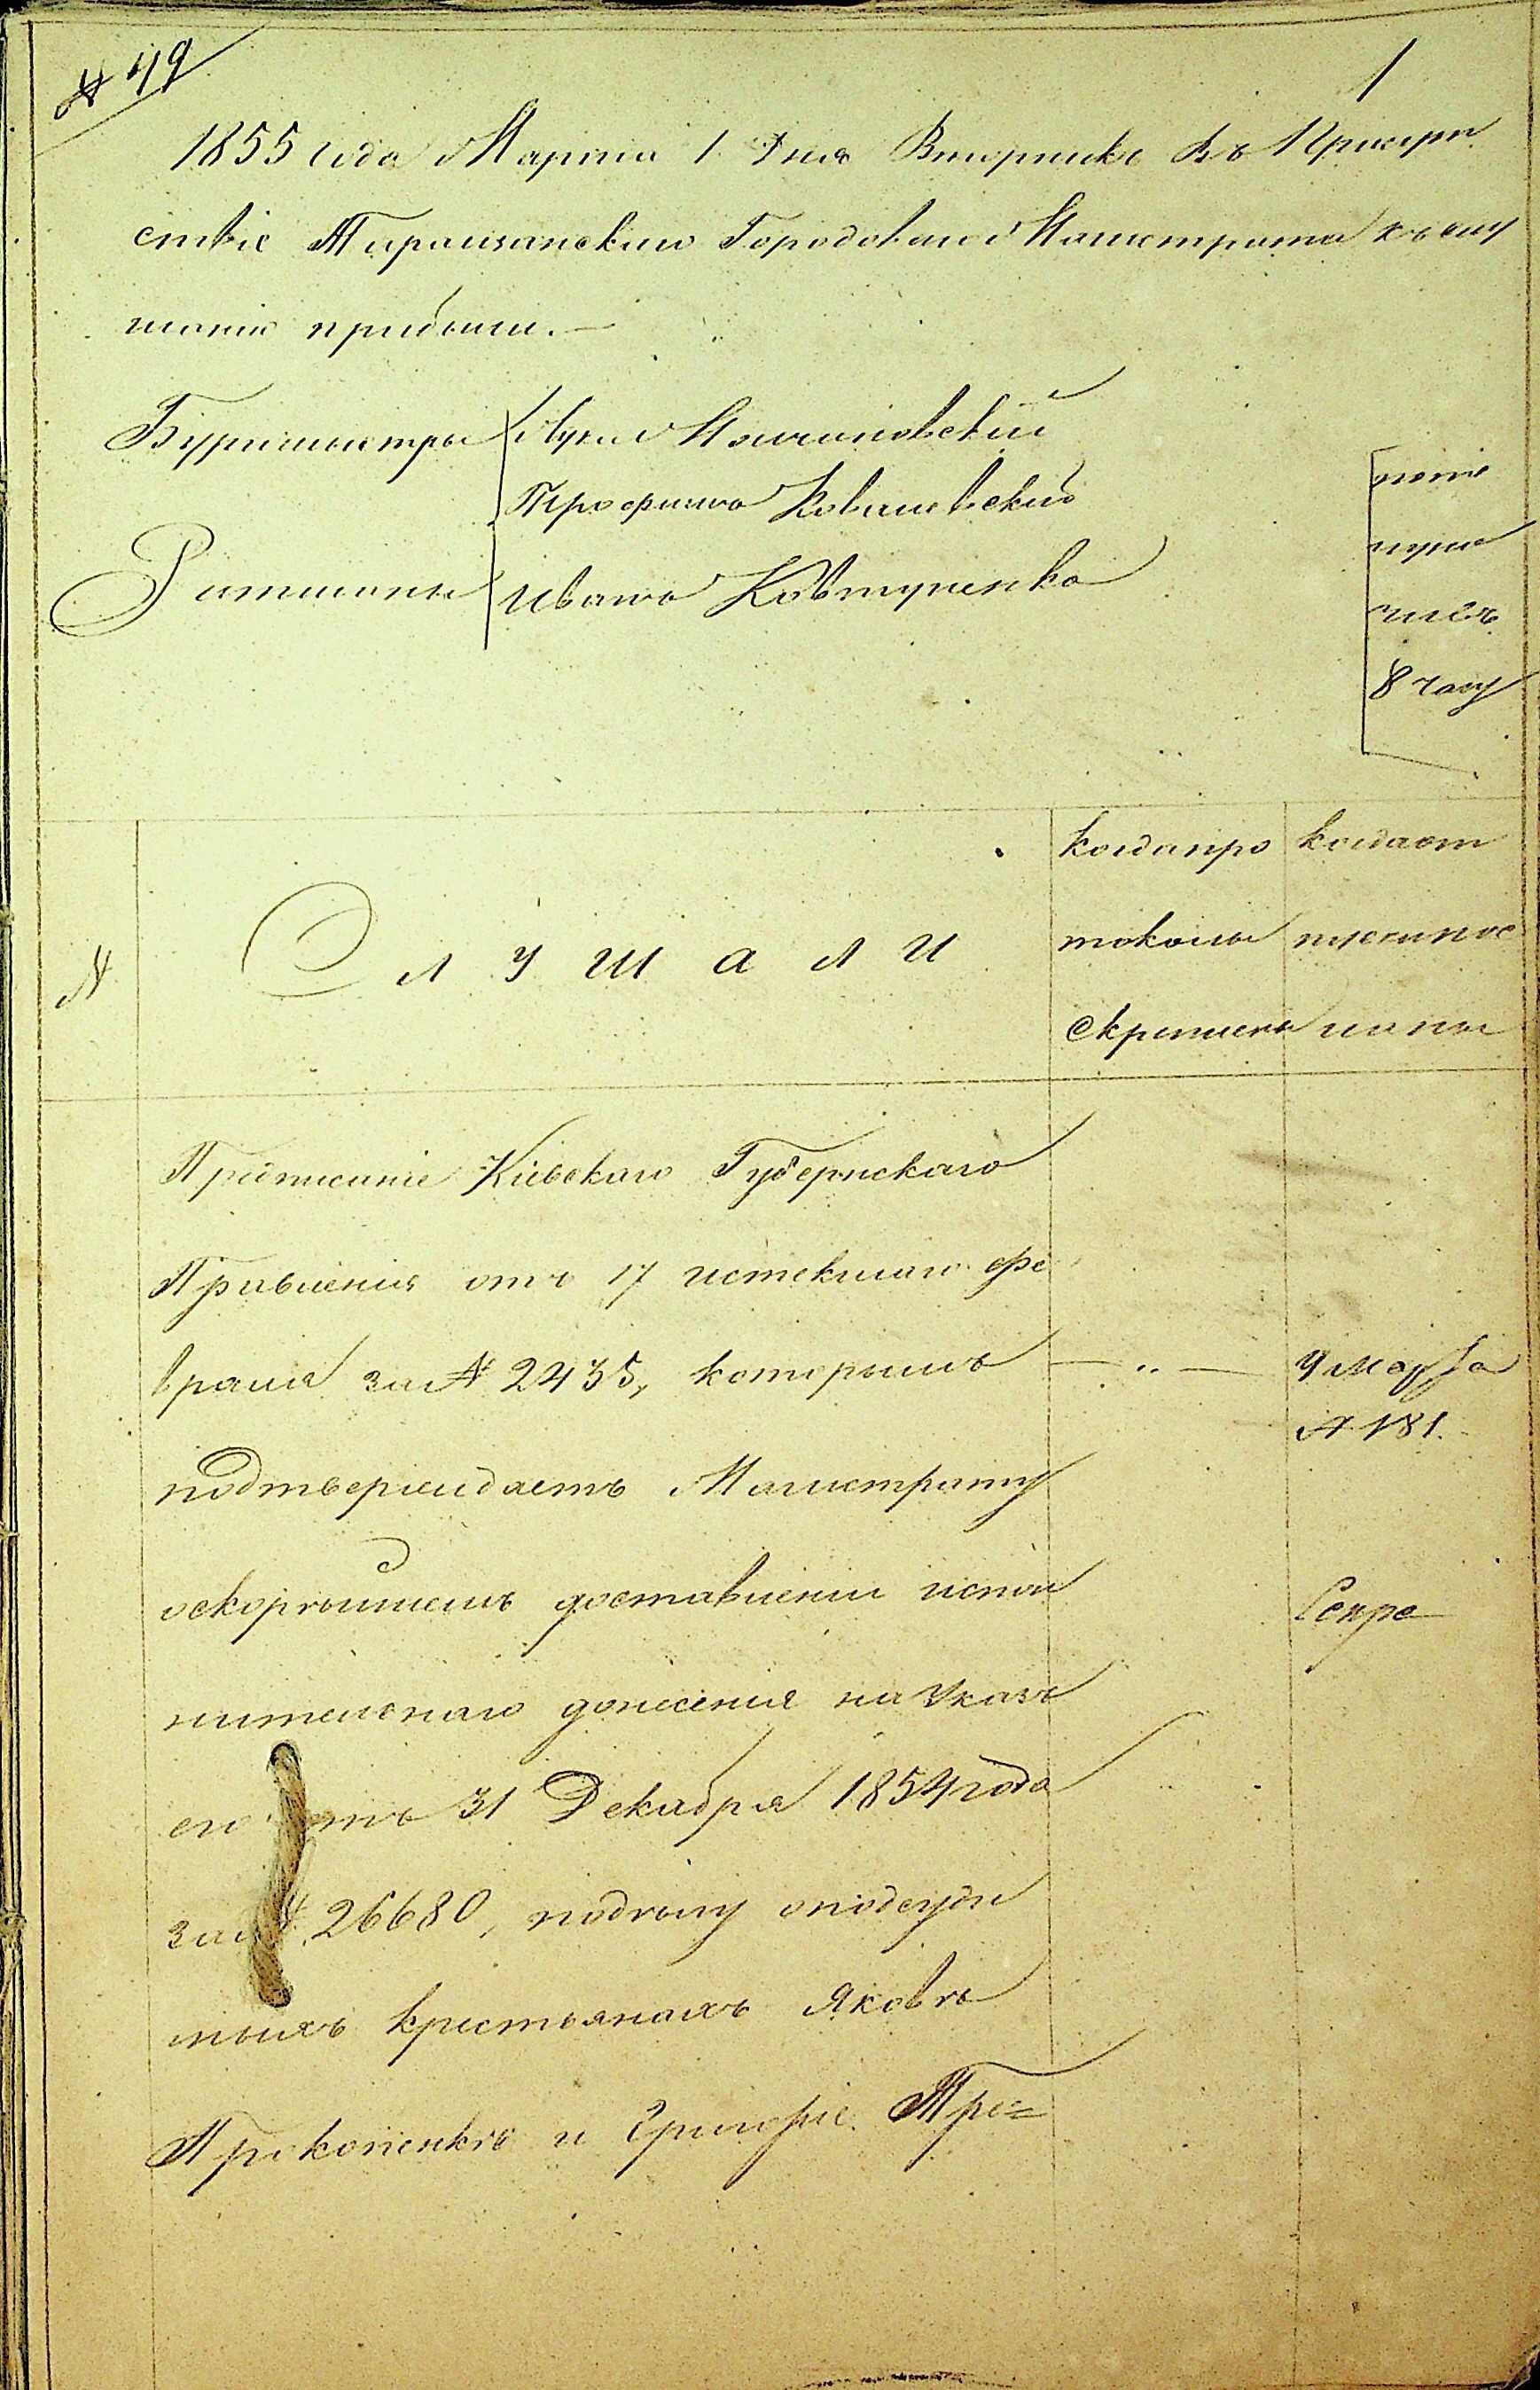 № 49
1
1855 года Марта 1 Дня Вторникъ Въ Присут
ствіе Таращанскаго Городоваго Магистрата къ слу
шанію прибыли. —
Бургомистры
Лука
Трофимъ Ковалевскій
Ратманы Иванъ Ковтуненко
8 часу
№
Слушали
когда про
токолы
скреплены
когда от
пуск
Предписаніе Кіевскаго Губернскаго
Правленія отъ 17 истекшаго Фе
враля за № 2435, которымъ
— " —
9 Марта
№ 181.
подтверждаетъ Магистрату
о скорѣйшемъ доставленіи испол
нительнаго донесенія на Указъ
его отъ 31 Декабря 1854 года
за № 26680, по дѣлу о подсуди
мыхъ крестьянахъ Яковѣ
Прокопенкѣ и Григоріе Тре=